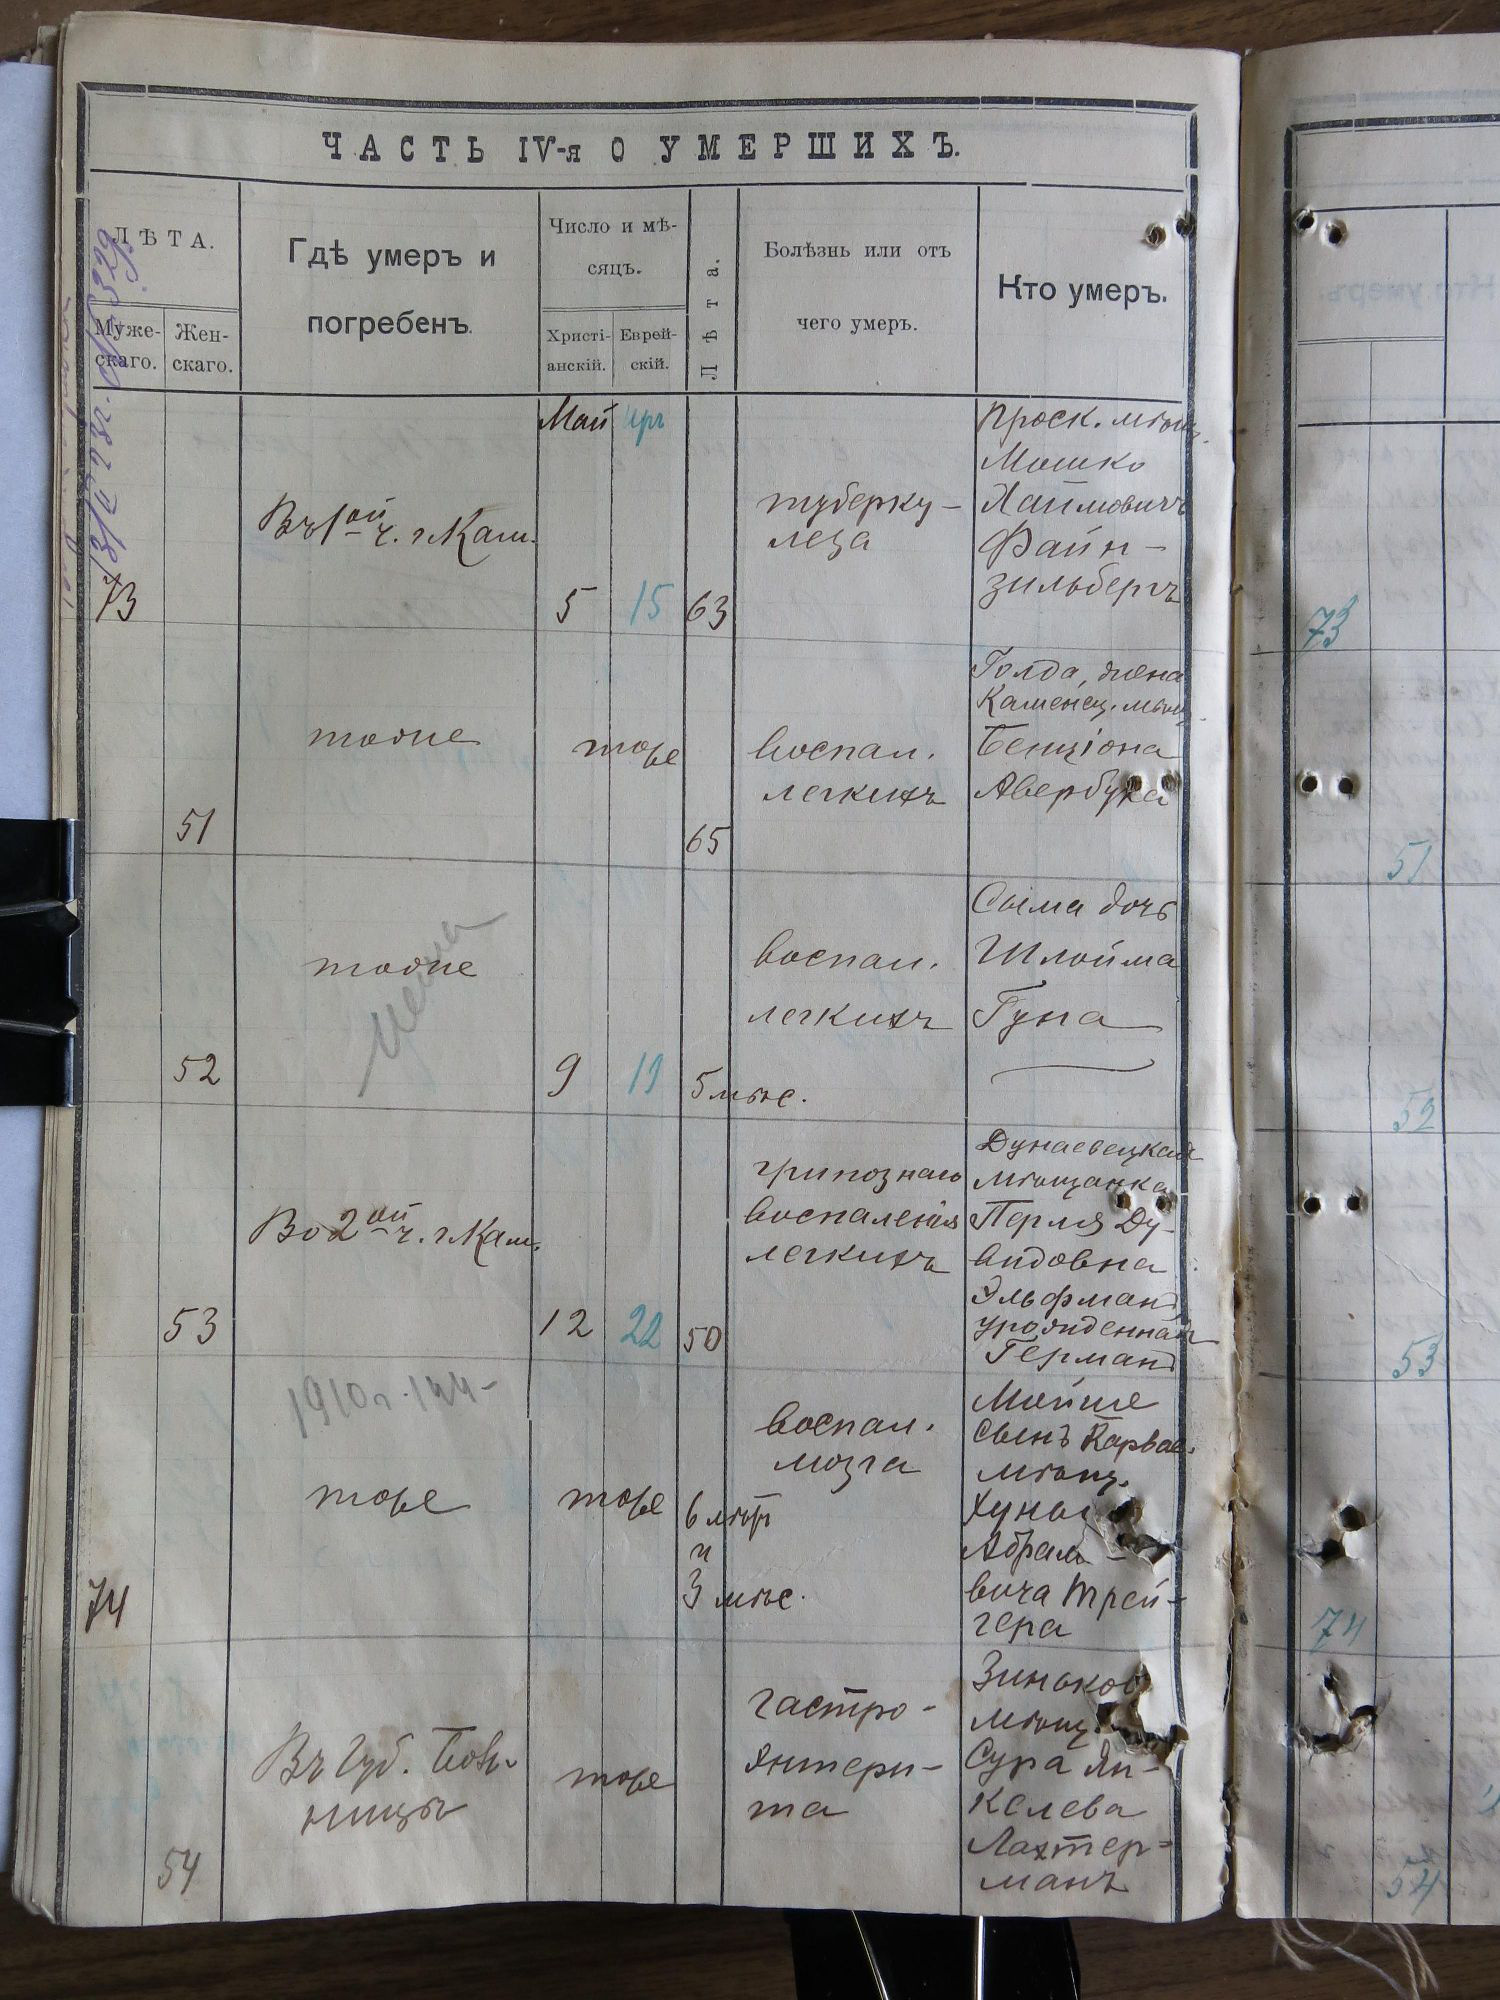 ЧАСТЬ IV-я О УМЕРШИХЪ.
ЛѢТА.
Муже-
скаго.
Жен-
скаго.
Гдѣ умеръ и
погребенъ.
Число и мѣ-
сяцъ.
Христі-
анскій.
Еврей-
скій.
Лѣта.
Болѣзнь или отъ
чего умеръ.
Кто умеръ.
73
Въ 1ой ч. г. Кам.
Май
5
Иръ
15
63
туберку-
леза
Проск. мѣщ.
Мошко
Хаимовичъ
Файн-
зильберъ
51
тоже
тоже
65
воспал.
легкихъ
Голда, жена
Каменец. мѣщ.
Бенціона
Авербуха
52
тоже
9
19
5 мѣс.
воспал.
легкихъ
Сыма дочь
Шлойма
Гуна
53
Во 2ой ч. г. Кам.
12
22
50
грипознаго
воспаленія
легкихъ
Дунаевецкая
мѣщанка
Перля Ду-
видовна
Эльфманъ
урожденная
Германъ
1910г.
74
тоже
тоже
6 лѣтъ
и
3 мѣс.
воспал.
мозга
Мойше
сынъ
мѣщ.
Хуны
Абрам-
вича Трей-
гера
54
Въ Губ. Боль-
ницѣ
тоже
гастро-
энтери-
та
Зиньков
мѣщ.
Сура Ян-
келева
Лахтер-
манъ
73
51
52
53
74
54